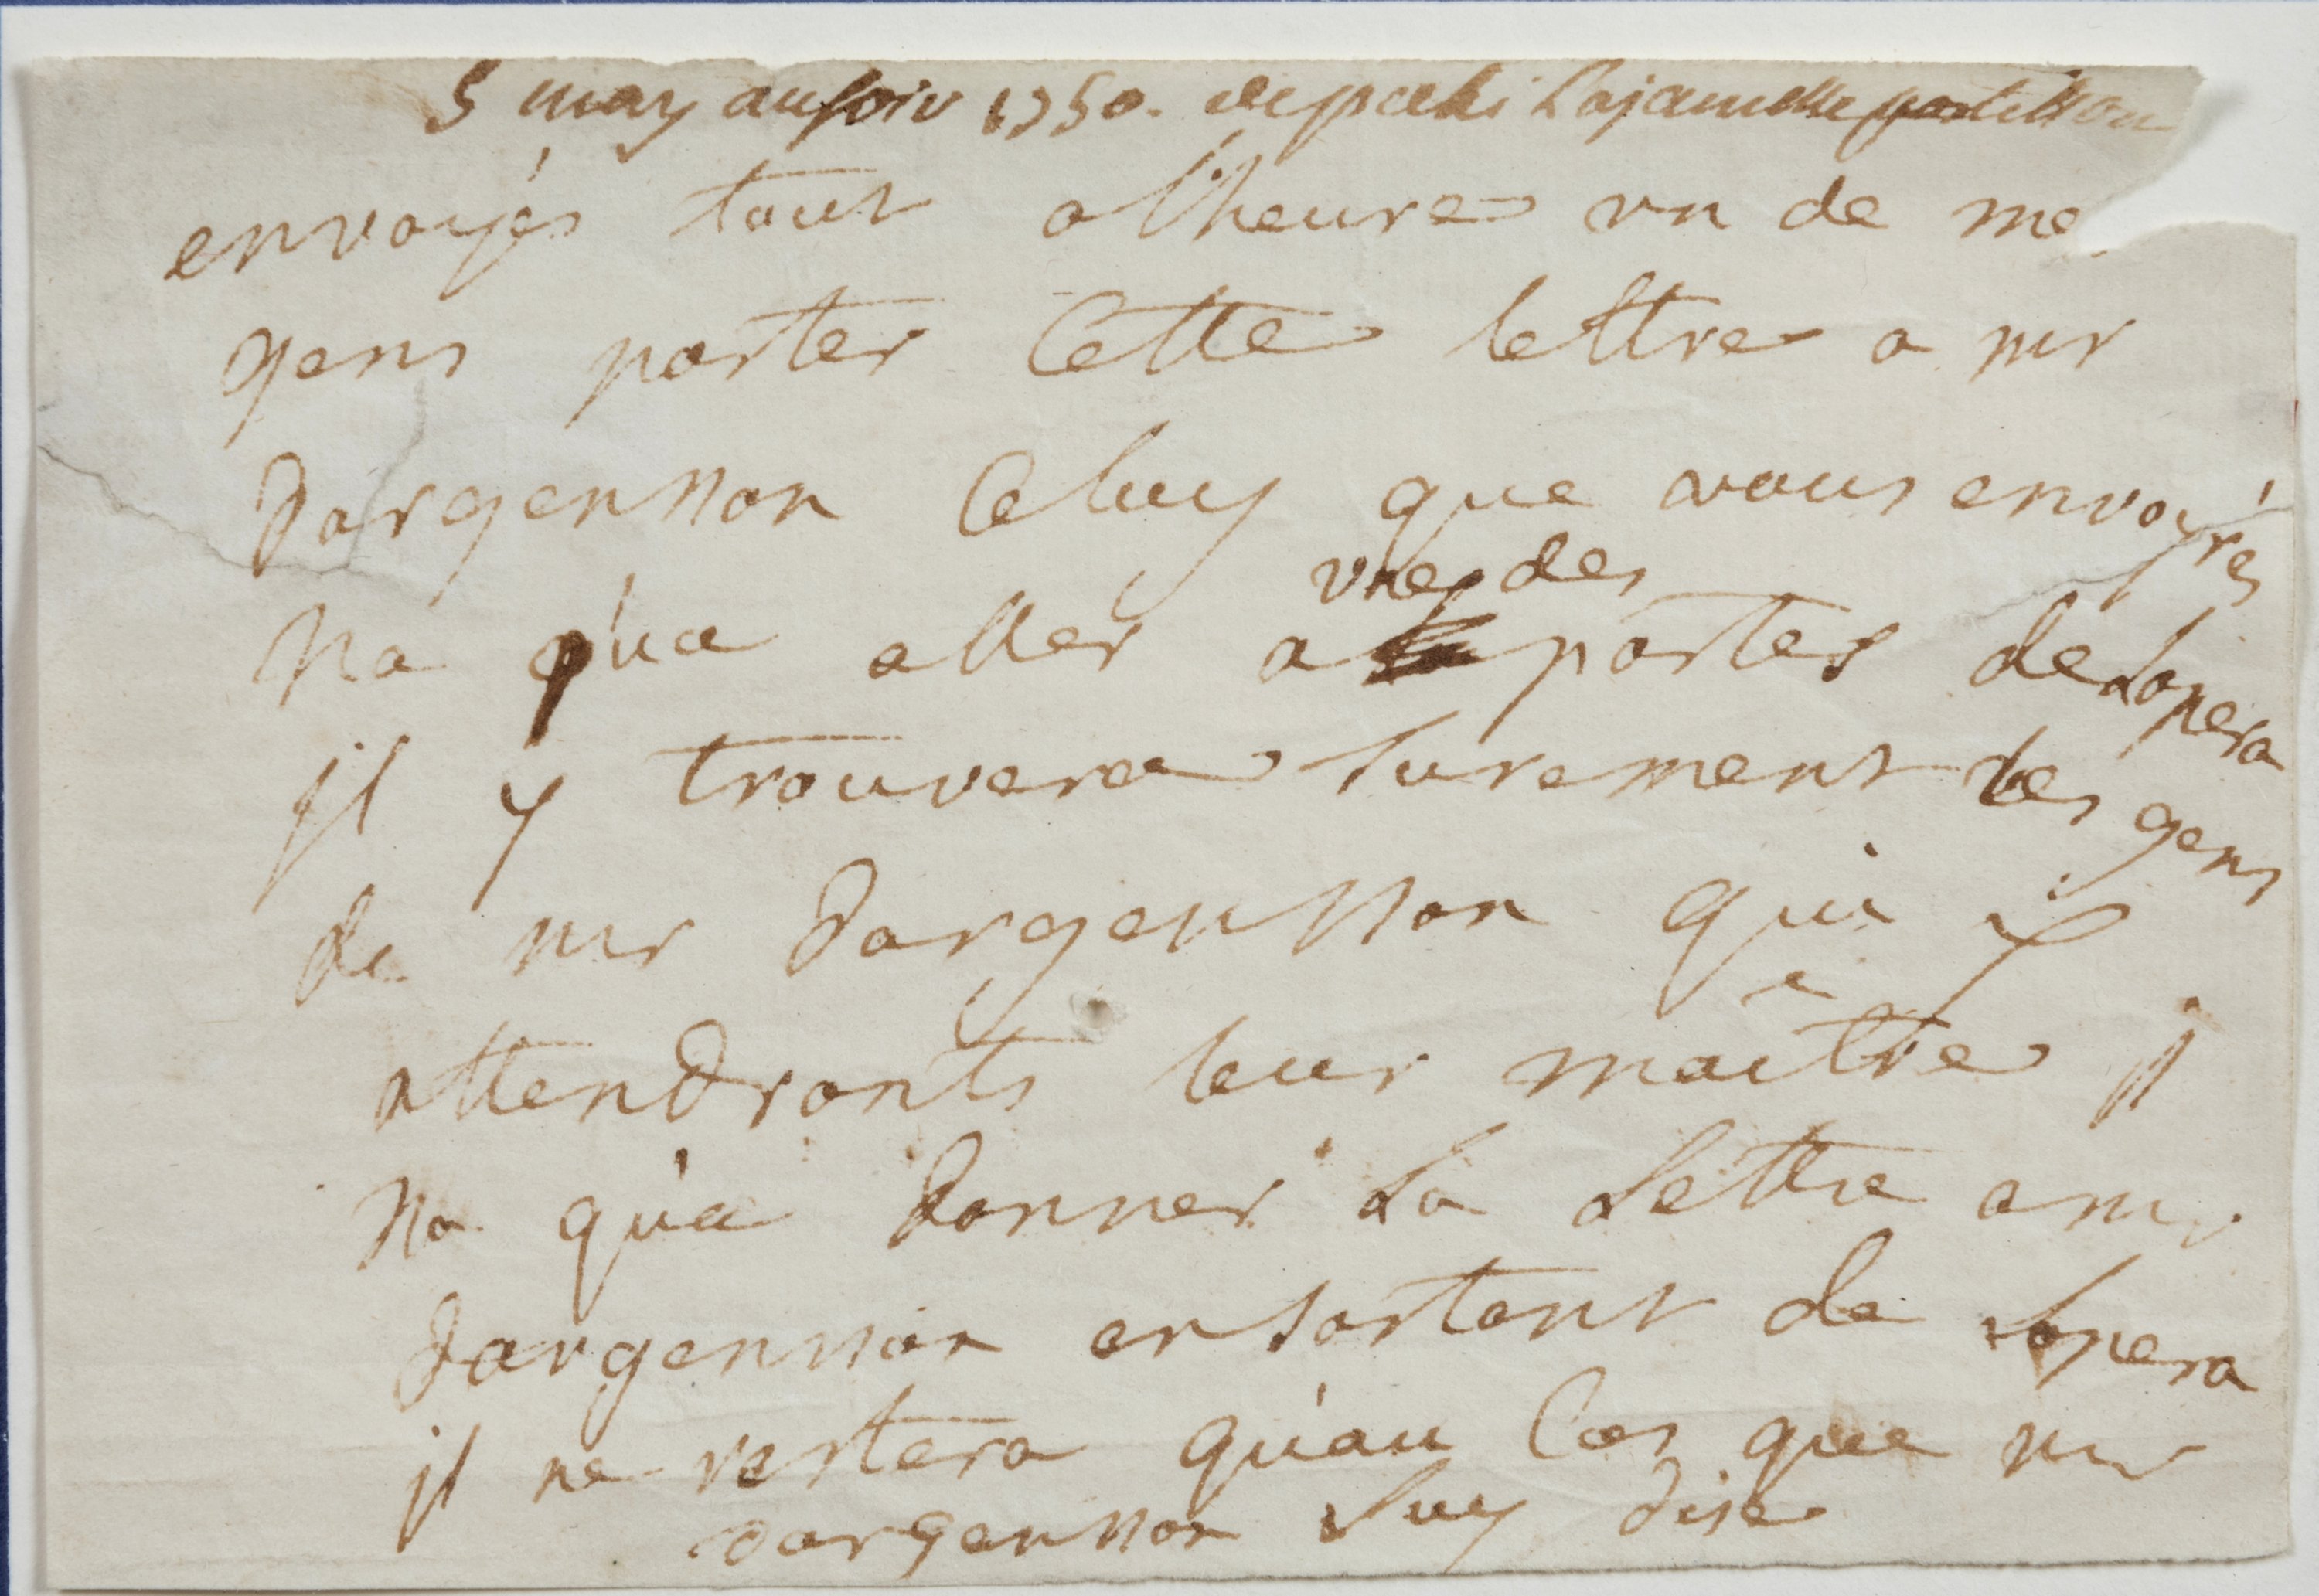 5 may au soir 1750. depeché Lajeunesse postillon
envoyés tout a lheure un de me
gens porter Cette lettre a mr
Dargensson Celuy que vous envoyrés
Na qu'a aller a une des portes de Lopera
jl y trouvera surement des gens
de mr Dargensson qui y
attendronts leur maître jl
Na qu'a Donner La Lettre a mr
Dargensson en sortant de Lopera
jl ne restera qu'au Cas que mr
dargensson Luy dise